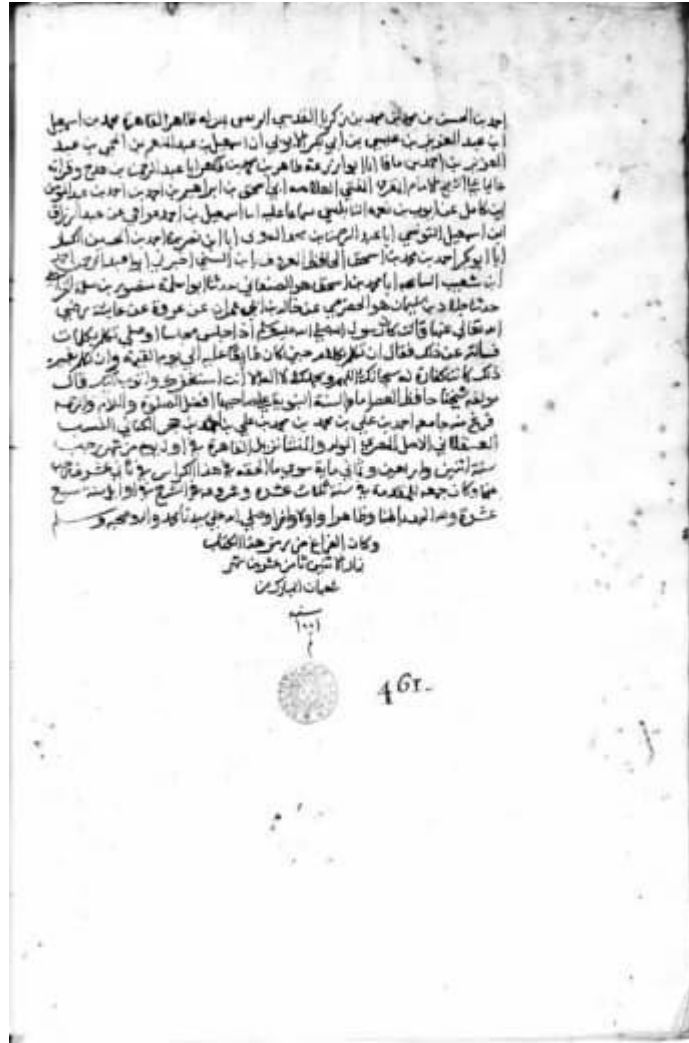 احمد بن الحسن بن محمد بن محمد بن زكريا القدسي الزينبي بمنزله ظاهر القاهرة محمد بن اسمعيل
ابن عبد العزيز بن عيسى بن ابي بكر الايوبي ان اسمعيل بن عبد المنعم بن الخيمي بن عبد
العزيز بن احمد بن باقا انا ابو زرعة طاهر بن محمد بن طاهر انا عبد الرحمن بن وقرات
عاليا على الشيخ الامام المقري المفتي العلامه ابي اسحق بن ابراهيم بن احمد بن احمد بن عبد المومن
ابن كامل عن ايوب بن نعمه النابلسي سماعا عليه انا اسمعيل بن احمد عن عبد الرزاق
ابن اسمعيل القومسي انا عبد الرحمن بن حمد الدوني انا ابو نصر احمد بن الحسين الكسار
انا ابو بكر احمد بن محمد بن اسحق الحافظ المعروف بابن السني اخبرنا ابو عبد الرحمن احمد
ابن شعيب النسائي انا محمد بن اسحق هو الصغاني حدثنا ابو سلمة منصور بن سلمة الخزاعي
حدثنا خلاد بن سليمان هو الحضرمي عن خالد بن ابي عمران عن عروة عن عايشة رضي
الله تعالى عنها قالت كان رسول الله صلى الله عليه وسلم اذا جلس مجلسا او صلى تكلم بكلمات
فسالته عن ذلك فقال ان تكلم بكلام خير كان طابعا عليه الى يوم القيمة وان تكلم بغير
ذلك كانت كفارة له سبحانك اللهم وبحمدك لا اله الا انت استغفرك واتوب اليك قال
مولفه شيخنا حافظ العصر امام السنة النبوية على صاحبها افضل الصلوة والسلام
فرغ منه جامعه احمد بن علي بن محمد بن محمد بن علي بن احمد بن حجر الكناني النسب
العسقلاني الاصل المصري المولد والمنشا نزيل القاهرة في اول يوم من شهر رجب
سنة اثنين واربعين وثماني ماية سوى ما الحقه في هذا الكراس في ثاني عشر
وكان جمعه للمقدمة في سنة ثلاث عشرة وشروعه في الشرح في اوايل سنة سبع
عشرة ولله الحمد باطنا وظاهرا واولا واخرا وصلى الله على سيدنا محمد واله وصحبه وسلم
وكان الفراغ من هذا الكتاب
نهار الاثنين ثامن عشرين شهر
شعبان المبارك من
سنة
١٠٠١
م
461-